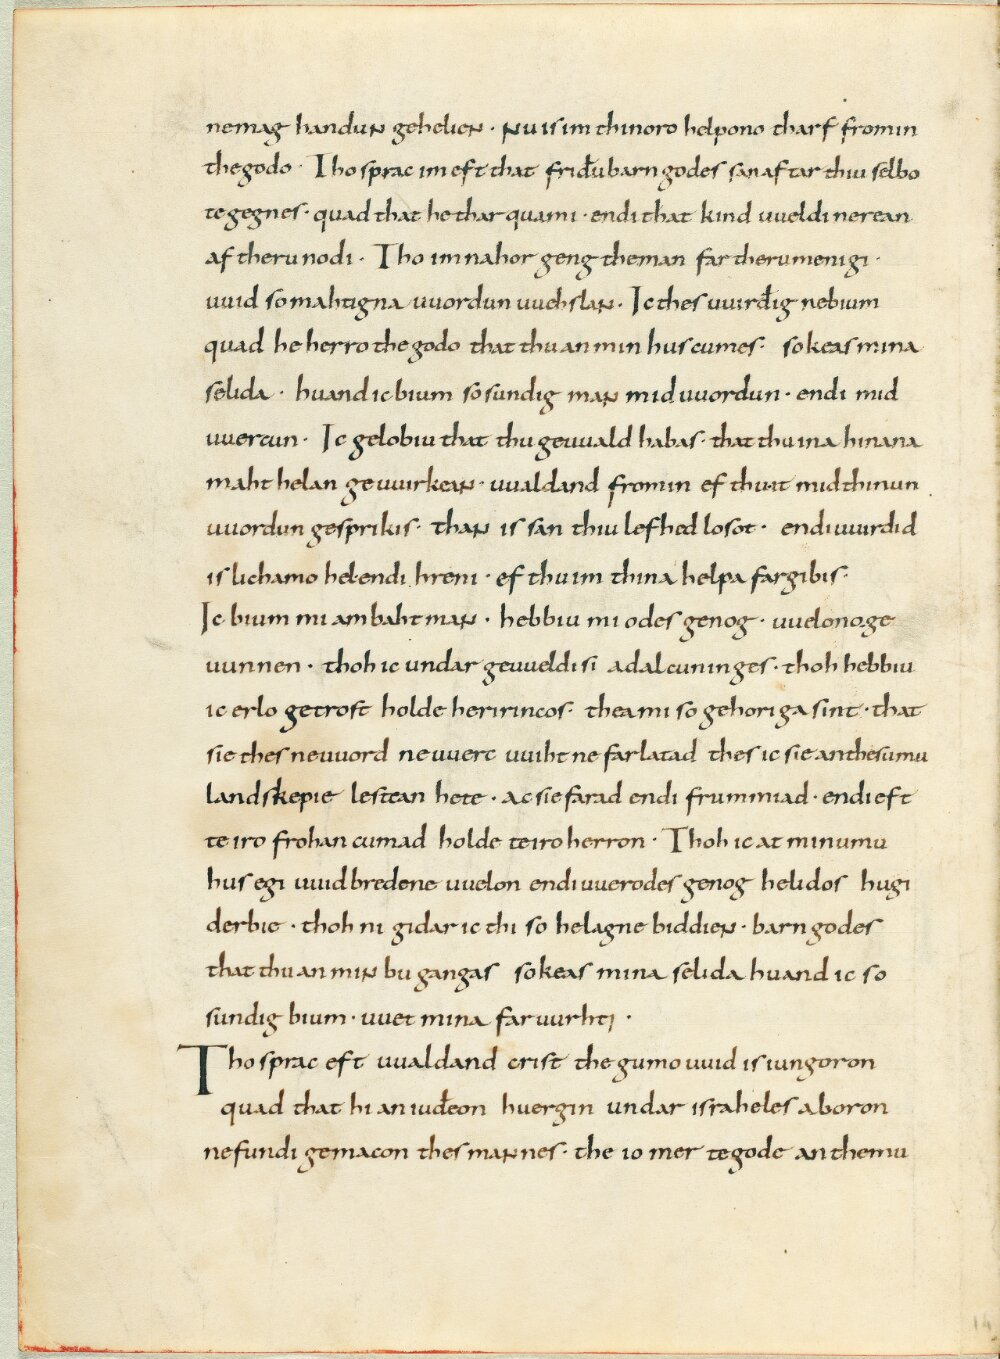 nemag handun gehelien · nu is im thinoro helpono tharf fromin
thegodo · Tho sprac im eft that friđubarn godes san aftar thiu selbo
tegegnes · quad that he thar quami · endi that kind uueldi nerean
af theru nodi · Tho im nahor geng theman far theru menigi ·
uuid so mahtigna uuordun uuehslan · Ic thes uuirđig nebium
quad he herro thegodo that thu an min hus cumes · sokeas mina
selida · huand ic bium so sundig man mid uuordun · endi mid
uuercun · Ic gelobiu that thu geuuald habas · that thu ina hinana
maht helan geuuirkean · uualdand fromin ef thu it mid thinun
uuordun gesprikis · than is san thiu lefhed losot · endi uuirdid
is lichamo hel endi hreni · ef thu im thina helpa fargibis ·
Ic bium mi ambahtman · hebbiu mi odes genog · uuelono ge
uunnen · thoh ic undar geuueldi si adalcuninges · thoh hebbiu
ic erlo getrost holde heririncos · thea mi so gehoriga sint · that
sie thes ne uuord ne uuerc uuiht ne farlatad thes ic sie an thesumu
landskepie lestean hete · ac sie farad endi frummiad · endi eft
te iro frohan cumad holde te iro herron · Thoh ic at minumu
hus egi uuidbredene uuelon endi uuerodes genog helidos hugi
derbie · thoh ni gidar ic thi so helagne biddien · barn godes
that thu an min bu gangas sokeas mina selida huand ic so
sundig bium · uuet mina faruurhti ·
Tho sprac eft uualdand crist the gumo uuid is iungoron
quad that hi an iuđeon huergin undar israheles aboron
ne fundi gemacon thes mannes · the io mer te gode an themu
14